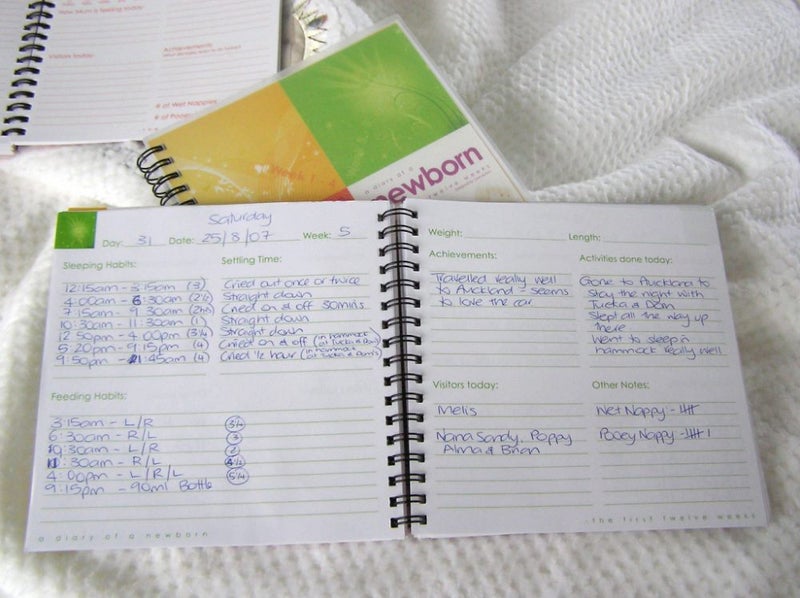 How Mum is feeling today:
Visitors today:
Achievements
# of Wet Nappies
# of Pooey
Week 1 -
a diary of a
newborn
twelve weeks
Saturday
Day: 31 Date: 25/8/07 Week: 5
Sleeping Habits:
Settling Time:
12:15am - 3:15am (3)
Cried out once or twice
4:00am - 6:30am (2½)
Straight down
7:15am - 9:30am
Cried on & off 30mins
10:30am - 11:30am (1)
Straight down
12:50pm - 4:00pm (3¼)
Straight down
5:20pm - 9:15pm (4)
Cried on & off (in hammock at Tucka & Dom's)
9:50pm - 1:45am (4)
Cried ½ hour (in hammock at Tucka & Dom's)
Feeding Habits:
3:15am - L/R
6:30am - R/L 3
9:30am - L/R 2
11:30am - R/L 4½
4:00pm - L/R/L 5¼
9:15pm - 90ml Bottle
a diary of a newborn
Weight:
Length:
Achievements:
Travelled really well
to Auckland - seems
to love the car
Activities done today:
Gone to Auckland to
stay the night with
Tucka & Dom
Slept all the way up
there
Went to sleep in
hammock really well
Visitors today:
Melis
Nana Sandy, Poppy
Alma & Brian
Other Notes:
Wet Nappy -
Pooey Nappy -
...the first twelve weeks